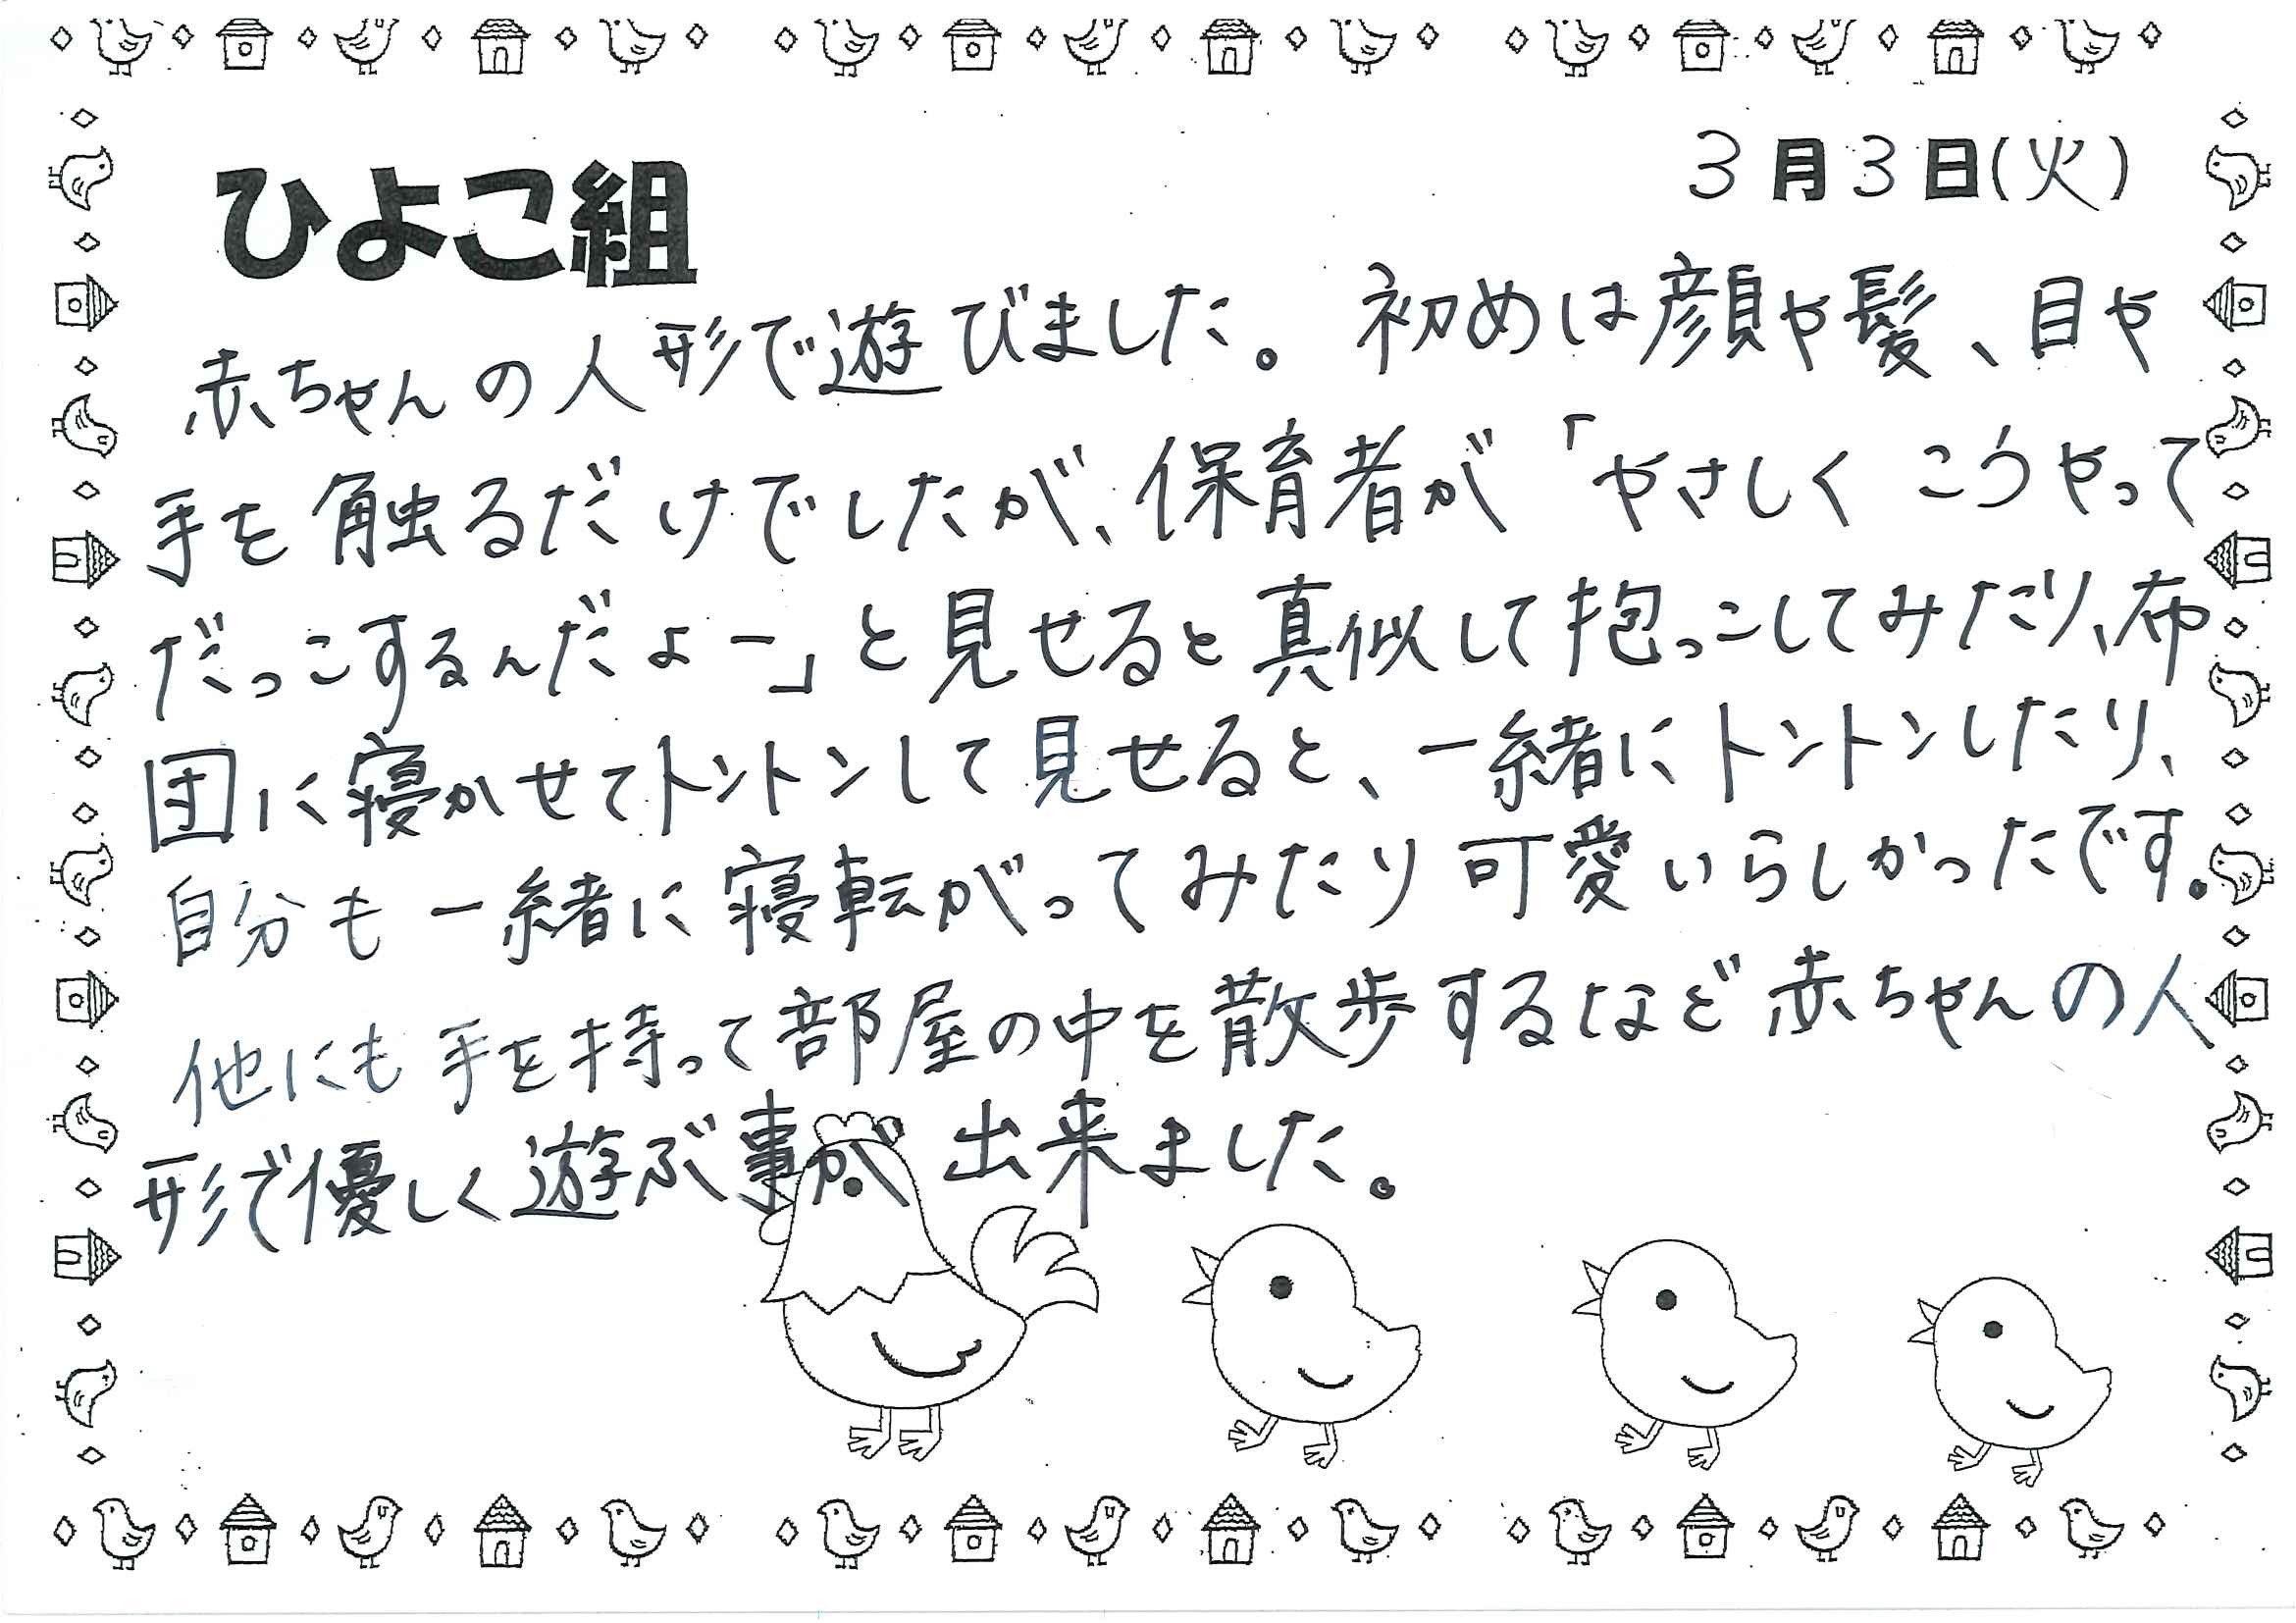 3月3日(火)
ひよこ組
赤ちゃんの人形で遊びました。初めは顔や髪、目や
手を触るだけでしたが、保育者が「やさしくこうやって
だっこするんだよー」と見せると真似して抱っこしてみたり、布
団に寝かせてトントンして見せると、一緒にトントンしたり、
自分も一緒に寝転がってみたり可愛いらしかったです。
他にも手を持って部屋の中を散歩するなど赤ちゃんの人
形で優しく遊ぶ事が出来ました。